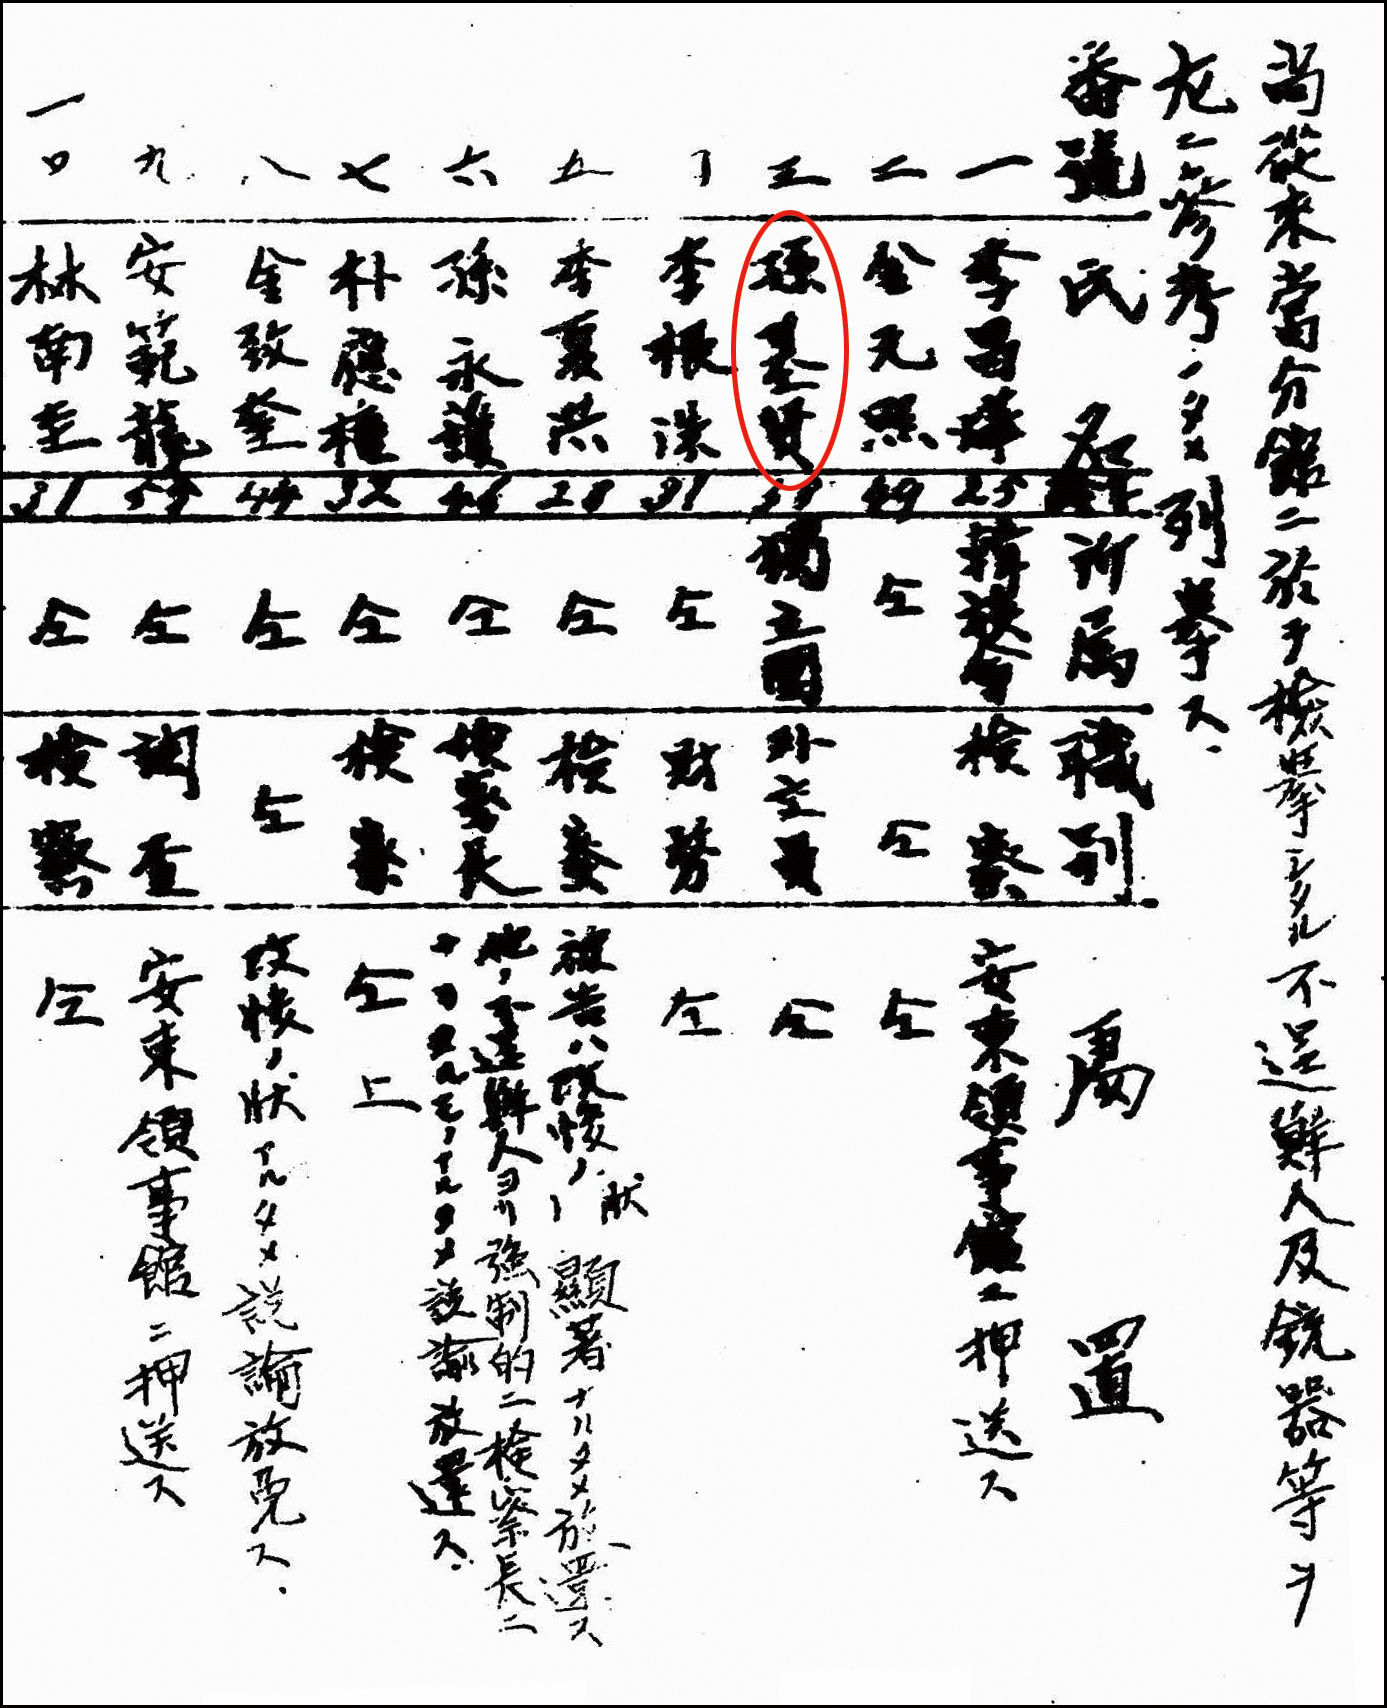 尚從来當分館ニ於テ検挙シタル不逞鮮人及銃器等ヲ
左ニ參考ノタメ列挙ス.
番號 氏名 年齢 所属 職別 處置
一 李昌華 25 韓族会 検察 安東領事館ニ押送ス
二 金元熙 49 仝 仝 仝
三 孫基賢 39 獨立團 外交員 仝
李根洙 31 仝 財務 仝
五 李夏洪 28 仝 検察 被告ハ改悛ノ状顕著ナルタメ放還ス
六 孫永護 46 仝 地方長 他ノ不逞鮮人ヨリ強制的ニ検察長ニ
ナリタルモノナルタメ説諭放還ス.
七 朴應種 32 仝 検察 仝上
八 金致奎 44 仝 仝 改悛ノ状アルタメ説諭放免ス.
九 安範龍 仝 調査 安東領事館ニ押送ス
一〇 林南圭 31 仝 検察 仝